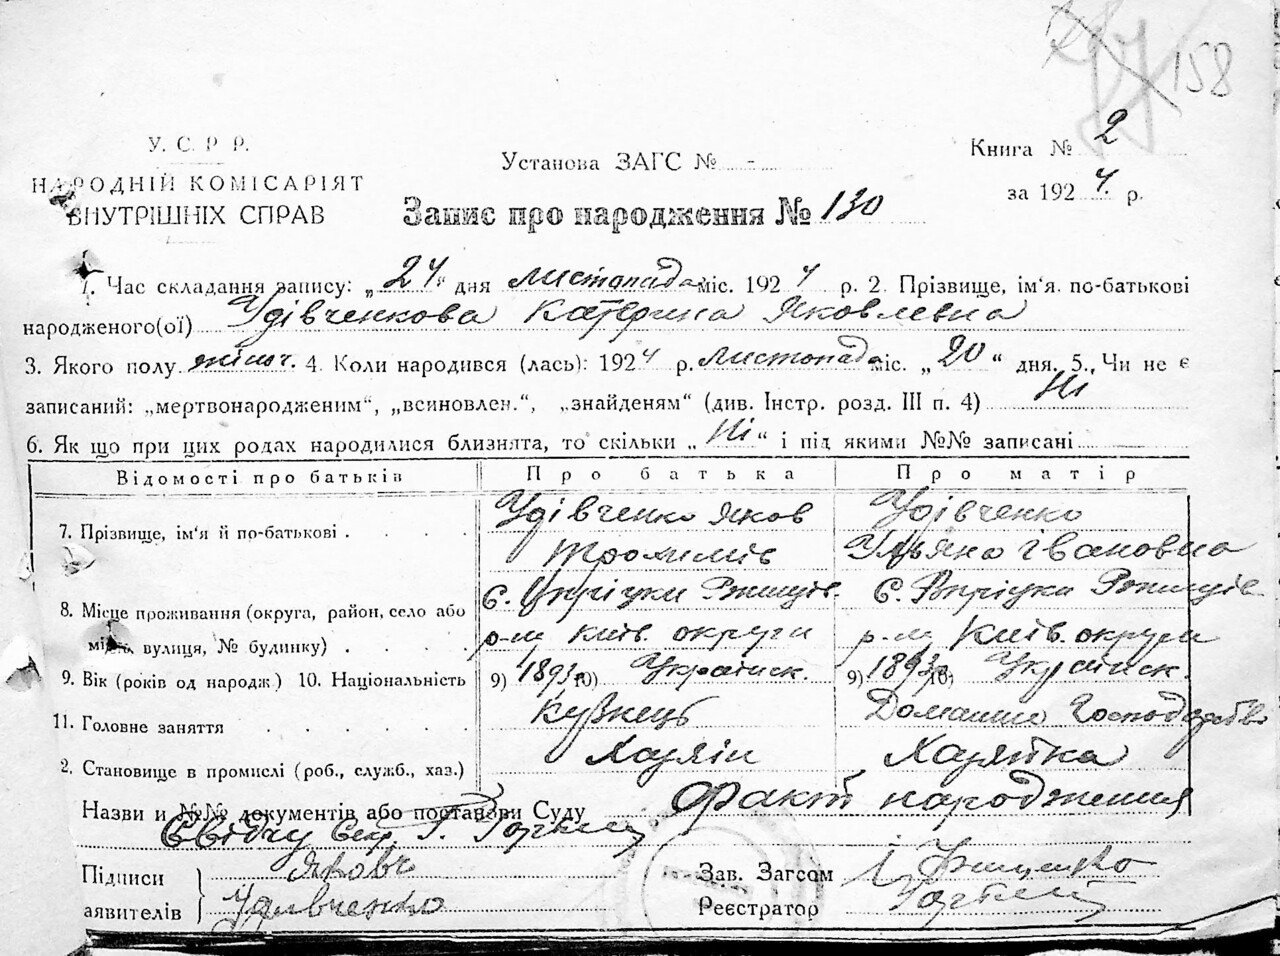 158
У. С. Р Р.
НАРОДНІЙ КОМІСАРІЯТ
ВНУТРІШНІХ СПРАВ
Установа ЗАГС № -
Книга № 2
за 1924 р.
Запис про народження № 130
1. Час складання запису: „24“ дня листопада міс. 1924 р. 2. Прізвище, ім'я по-батькові
народженого(ої) Удівченкова Катерина Яковлевна
3. Якого полу жіноч. 4. Коли народився (лась): 1924 р. листопада міс. „20“ дня. 5. Чи не є
записаний: „мертвонародженим“, „всиновлен.“, „знайденям“ (див. Інстр. розд. III п. 4) Ні
6. Як що при цих родах народилися близнята, то скільки „Ні“ і під якими №№ записані
Відомості про батьків Про батька Про матір
7. Прізвище, ім'я й по-батькові Удівченко Яков Удівченко
Ульяна Івановна
8. Місце проживання (округа, район, село або с.
місто, вулиця, № будинку) р-м Київ. округи р-м Київ. округи
9. Вік (років од народж.) 10. Національність 9) 1893 р. 10) Украінск. 9) 1893 р. 10) Украінск.
11. Головне заняття Кузнець Домашнє Господарство
2. Становище в промислі (роб., служб., хаз.) Хазяін Хазяйка
Назви и №№ документів або постанови Суду Факт народження
Підписи Яковъ
аявителів Удивченко
Зав. Загсом
Реєстратор